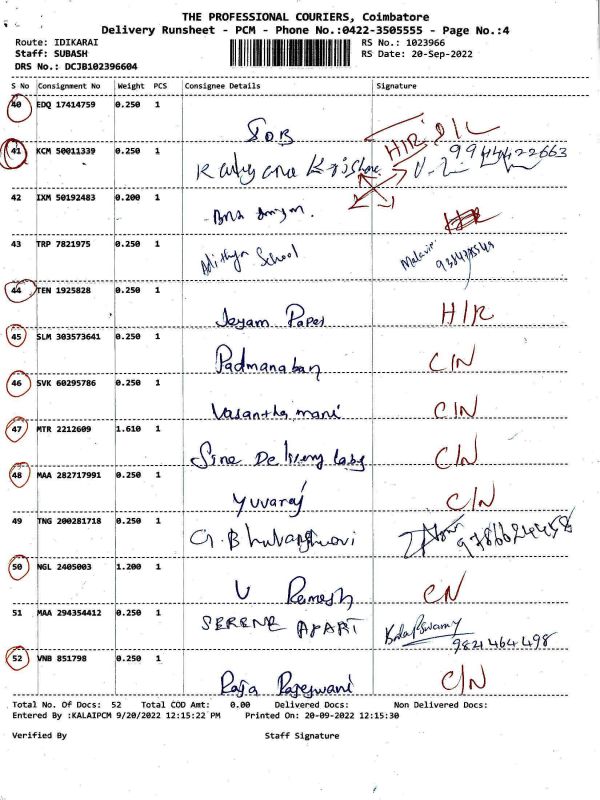 THE PROFESSIONAL COURIERS, Coimbatore
Delivery Runsheet - PCM - Phone No.:0422-3505555 - Page No.:4
Route: IDIKARAI RS No.: 1023966
Staff: SUBASH RS Date: 20-Sep-2022
DRS No.: DCJB102396604
S No Consignment No Weight PCS Consignee Details Signature
40 EDQ 17414759 0.250 1
SOB H/R D/L
41 KCM 50011339 0.250 1
Kalyana Krishna 9944422663
42 IXM 50192483 0.200 1
43 TRP 7821975 0.250 1
Adithya School Malavi
44 TEN 1925828 0.250 1
Jeyam Paper H/R
45 SLM 303573641 0.250 1
Padmanaban C/N
46 SVK 60295786 0.250 1
Vasantha mani C/N
47 MTR 2212609 1.610 1
C/N
48 MAA 282717991 0.250 1
Yuvaraj C/N
49 TNG 200281718 0.250 1
G. Bhuvaneshwari 9786624458
50 NGL 2405003 1.200 1
V Ramesh C/N
51 MAA 294354412 0.250 1
SERENE APART 9821464498
52 VNB 851798 0.250 1
Raja Rajeswani C/N
Total No. Of Docs: 52 Total COD Amt: 0.00 Delivered Docs: Non Delivered Docs:
Entered By :KALAIPCM 9/20/2022 12:15:22 PM Printed On: 20-09-2022 12:15:30
Verified By Staff Signature